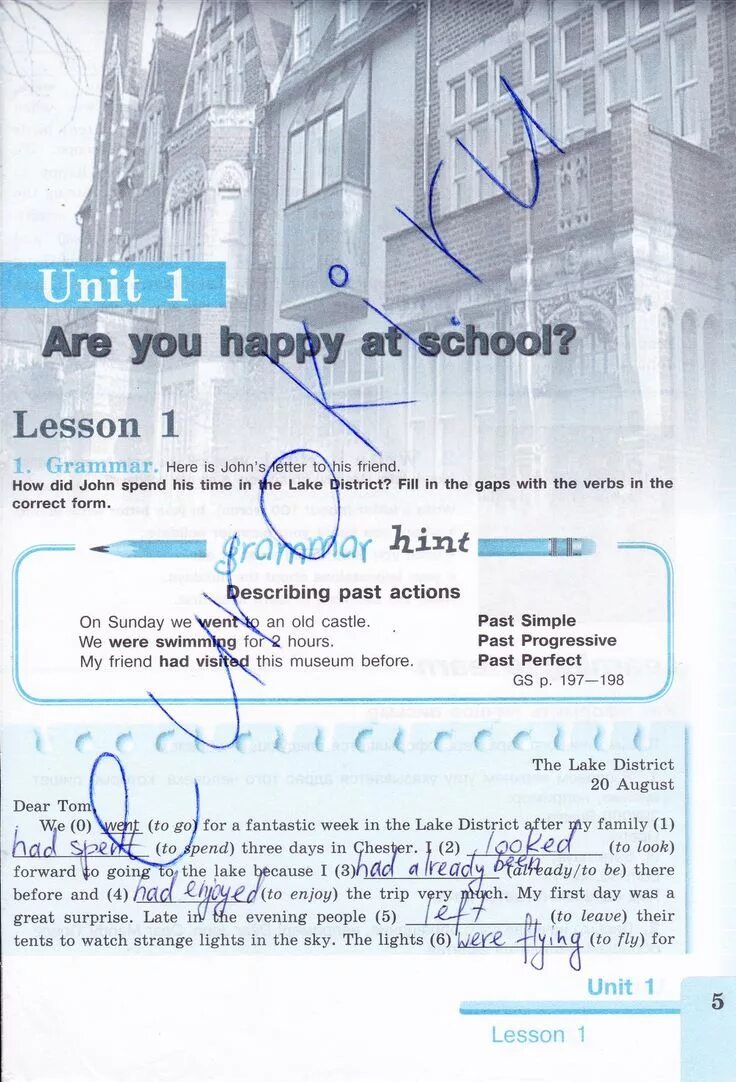 Unit 1
Are you happy at school?
Lesson 1
1. Grammar. Here is John's letter to his friend.
How did John spend his time in the Lake District? Fill in the gaps with the verbs in the
correct form.
grammar hint
Describing past actions
On Sunday we went to an old castle. Past Simple
We were swimming for 2 hours. Past Progressive
My friend had visited this museum before. Past Perfect
GS p. 197—198
The Lake District
20 August
Dear Tom,
We (0) went (to go) for a fantastic week in the Lake District after my family (1)
had spent (to spend) three days in Chester. I (2) looked (to look)
forward to going to the lake because I (3) had already been (already/to be) there
before and (4) had enjoyed (to enjoy) the trip very much. My first day was a
great surprise. Late in the evening people (5) left (to leave) their
tents to watch strange lights in the sky. The lights (6) were flying (to fly) for
Unit 1
5
Lesson 1